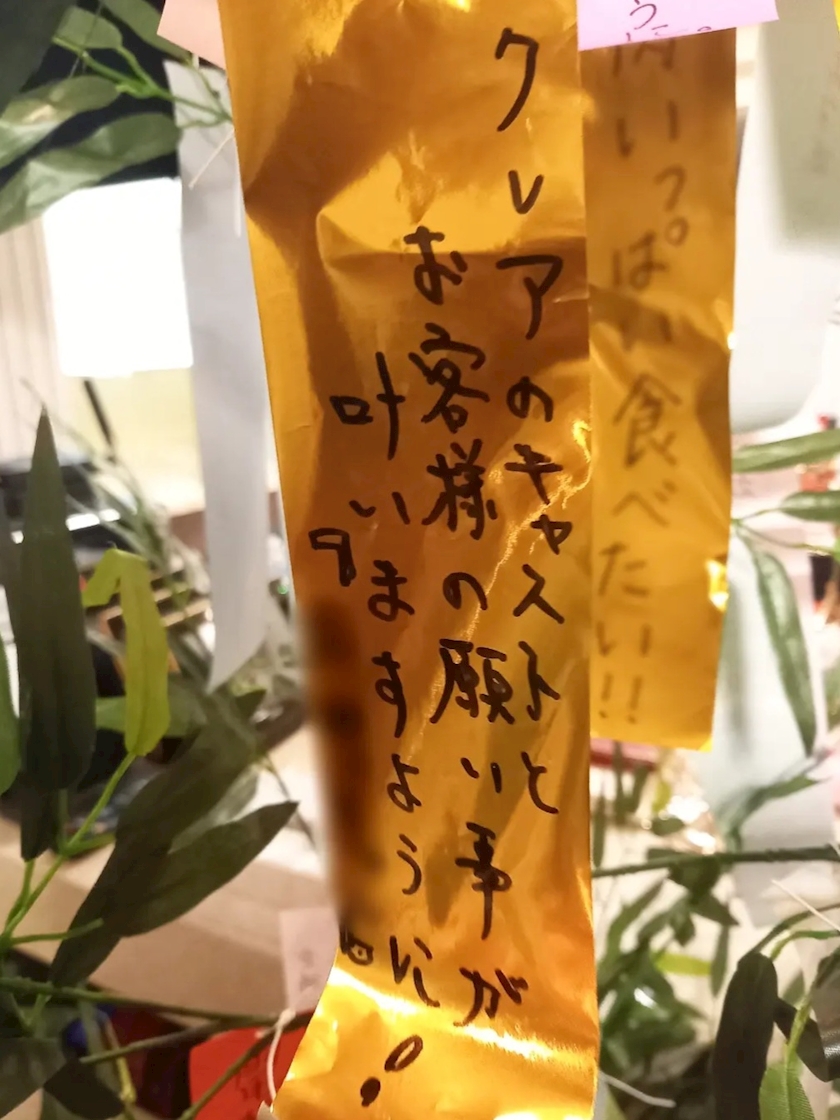 クレアのキャストと
お客様の願い事が
叶いますように!
いっぱい食べたい!!